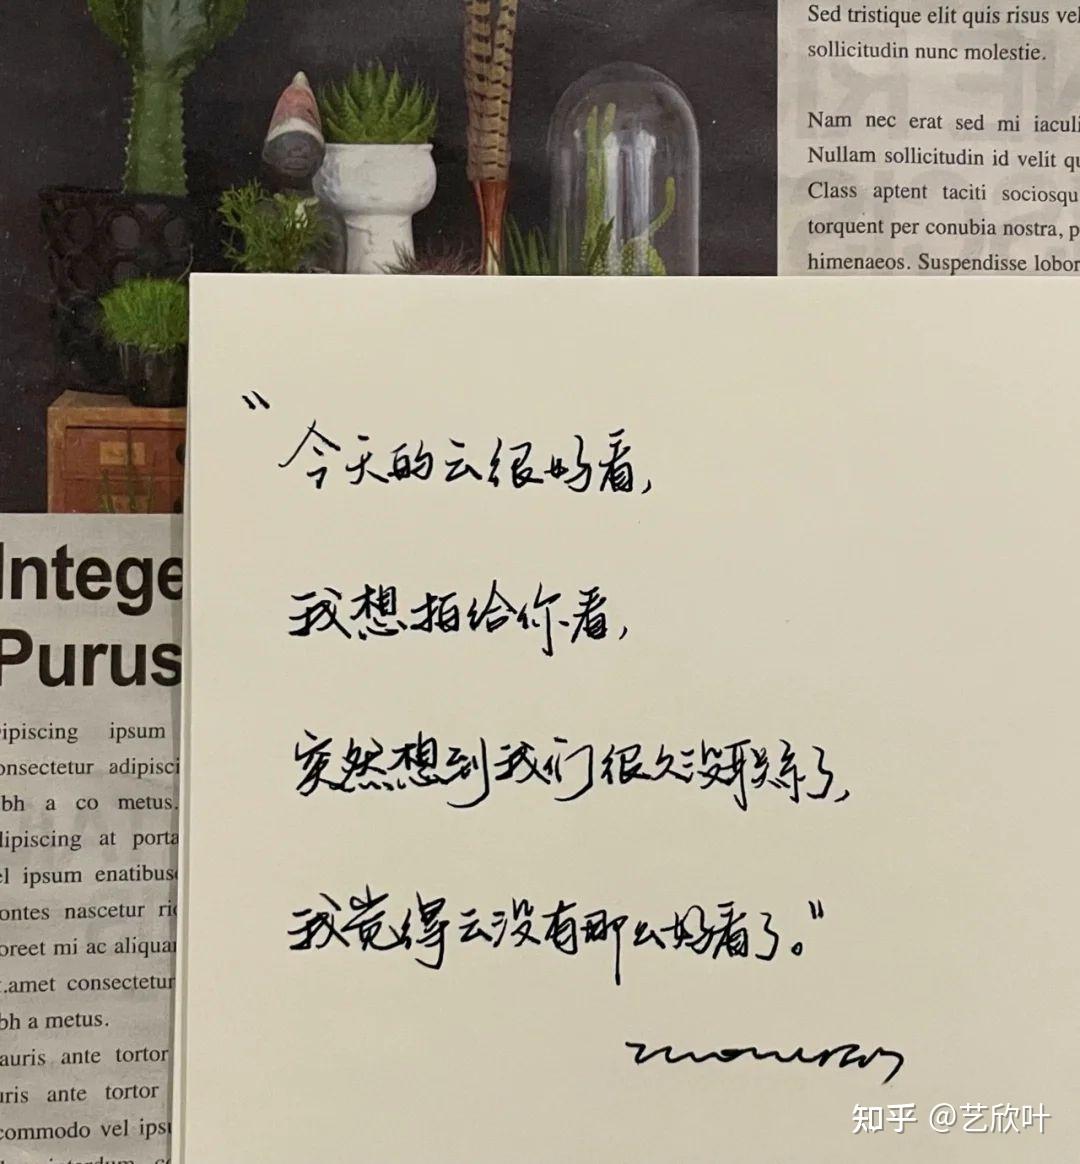 Sed tristique elit quis risus vel
sollicitudin nunc molestie.
Nam nec erat sed mi iaculi
Nullam sollicitudin id velit qu
Class aptent taciti sociosqu
torquent per conubia nostra, p
himenaeos. Suspendisse lobor
"今天的云很好看,
我想拍给你看,
突然想到我们很久没联系了,
我觉得云没有那么好看了。"
Intege
Purus
ipiscing ipsum
onsectetur adipisci
bh a co metus.
lipiscing at porta
el ipsum enatibus
ontes nascetur ri
oreet mi ac aliquar
.amet consectetur
bh a metus.
auris ante tortor
uris ante tortor
commodo vel ipsu
知乎 @艺欣叶